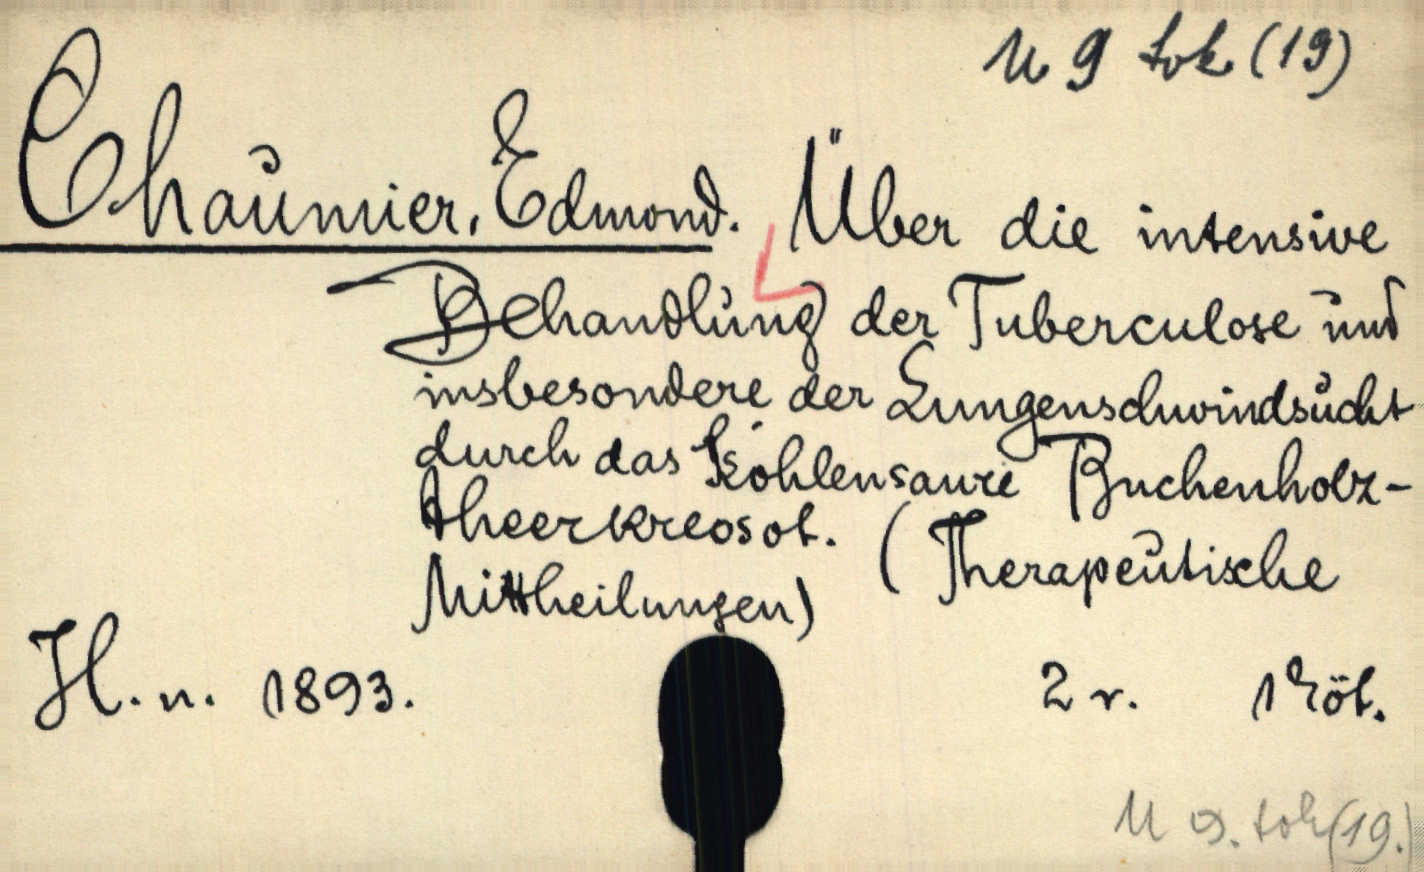 M 9 tok (19)
Chaumier, Edmond. Über die intensive
Behandlung der Tuberculose und
insbesondere der Lungenschwindsucht
durch das Kohlensaure Buchenholz-
theerkreosot. (Therapeutische
Mittheilungen)
H. n. 1893. 2 r. 1 Köt.
M 9. tok (19.)